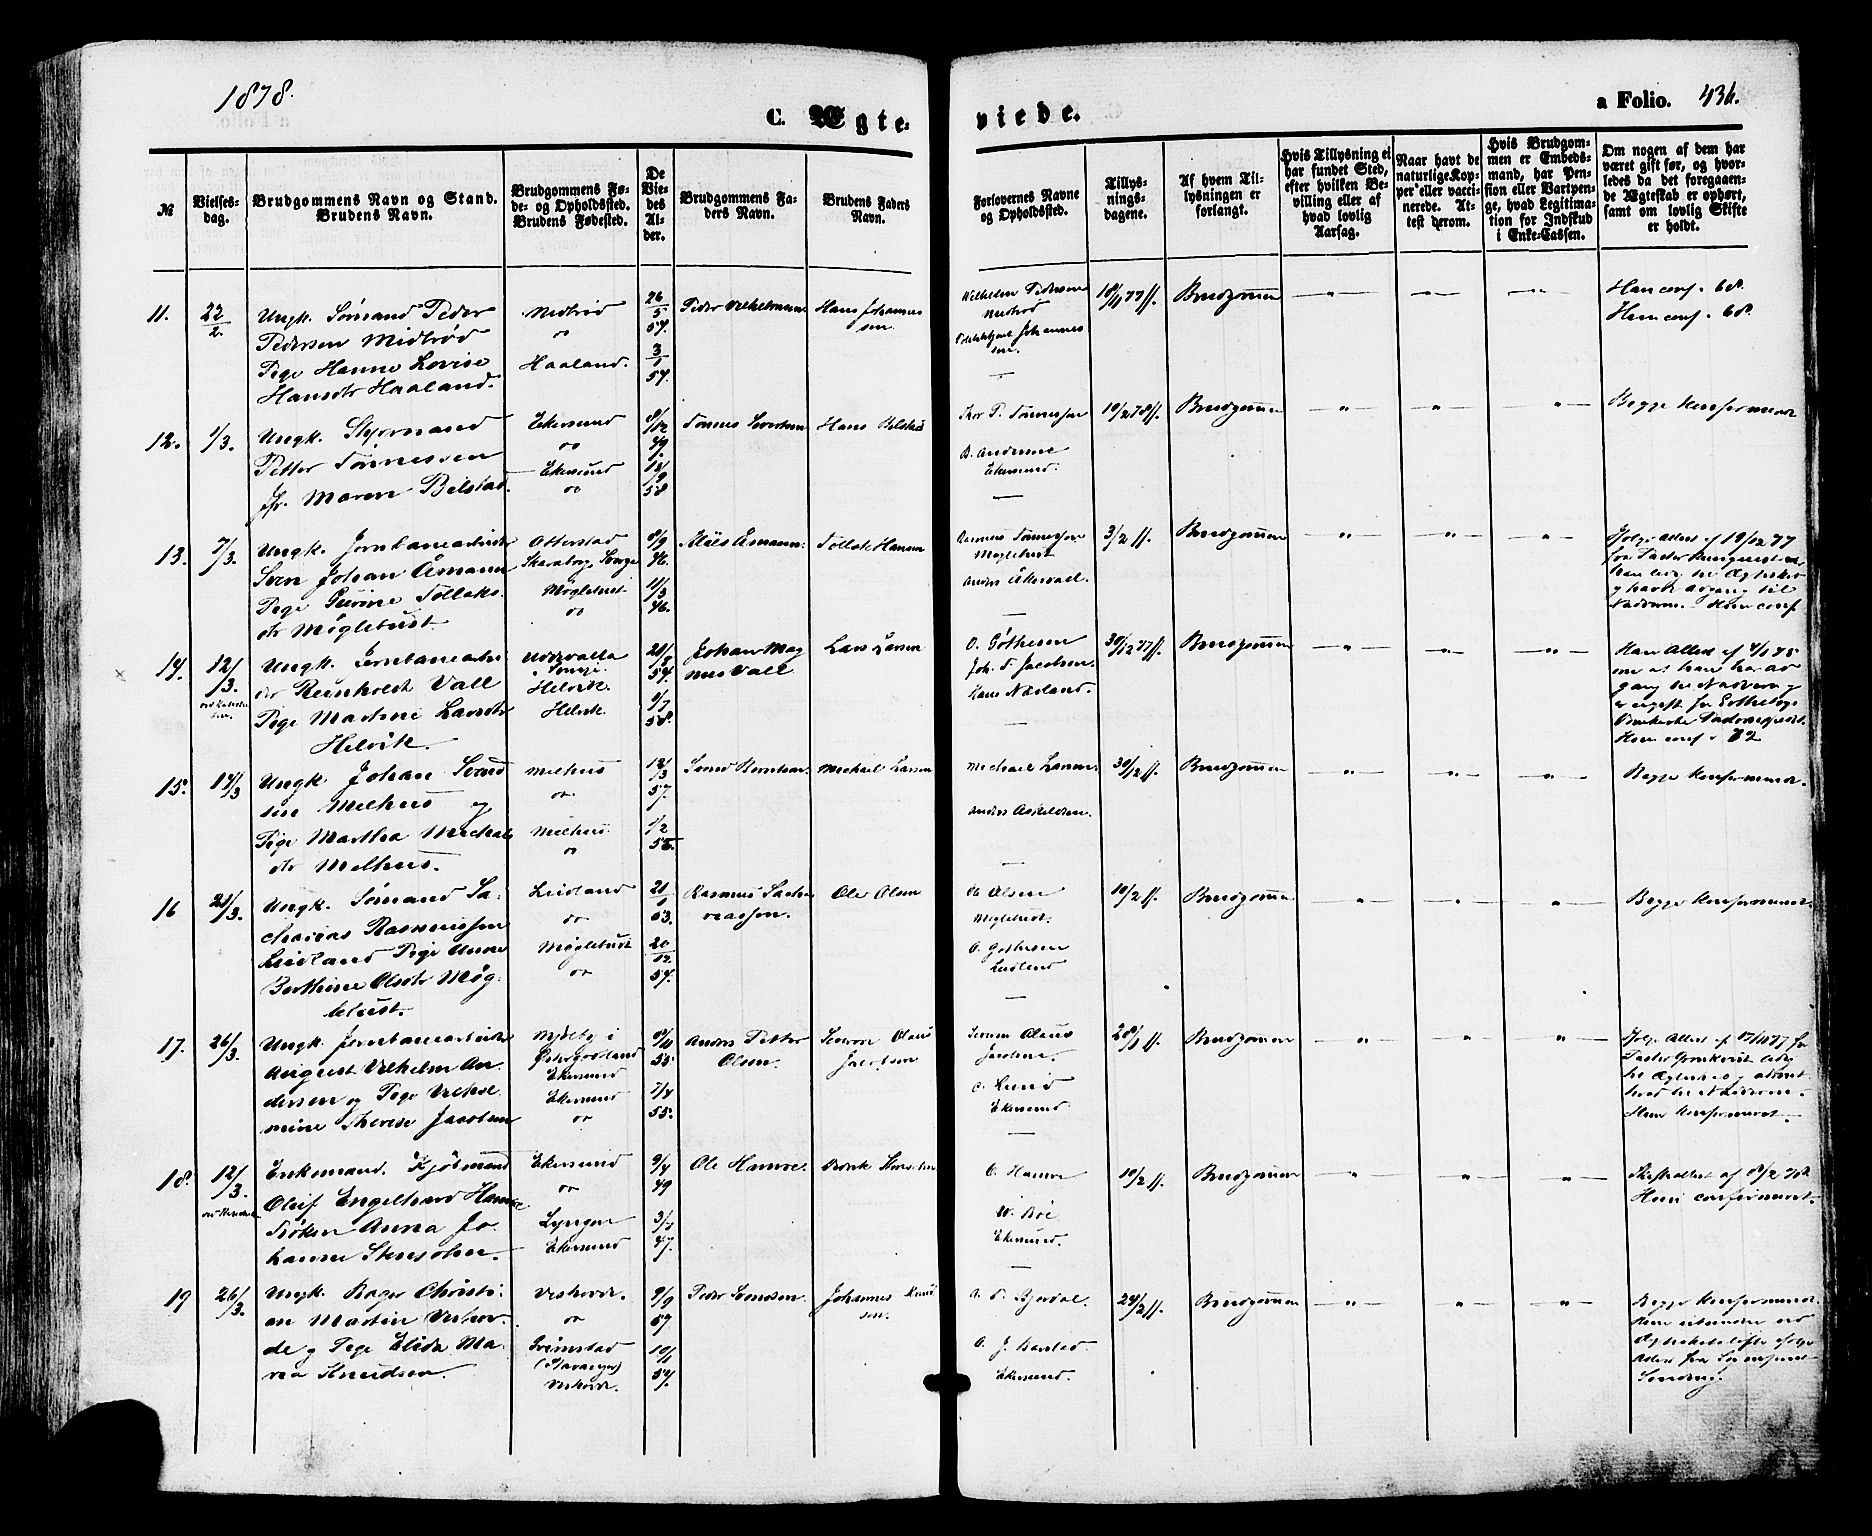 1878.
C. Ægte-
viede.
a Folio. 436.
№
Vielses-
dag.
Brudgommens Navn og Stand.
Brudens Navn.
Brudgommens Fø-
de- og Opholdssted.
Brudens Fødested.
De
Vie-
des
Al-
der.
Brudgommens Fa-
ders Navn.
Brudens Faders
Navn.
Forlovernes Navne
og Opholdssted.
Tillys-
nings-
dagene.
Af hvem Til-
lysningen er
forlangt.
Hvis Tillysning ei
har fundet Sted,
efter hvilken Be-
villing eller af
hvad lovlig
Aarsag.
Naar havt de
naturlige Kop-
per eller vacci-
nerede. At-
test derom.
Hvis Brudgom-
men er Embeds-
mand, har Pen-
sion eller Vartpen-
ge, hvad Legitima-
tion for Indskud
i Enke-Cassen.
Om nogen af dem har
været gift før, og hvor-
ledes da det foregaaen-
de Ægteskab er ophørt,
samt om lovlig Skifte
er holdt.
11.
22/2.
Ungk. Sømand Peder
Pedersen Midbrød
Pige Hanne Lovise
Hansdtr Haaland.
Midbrød
do
Haaland.
26/5
57.
3/1
57.
Peder Vilhelmsen
Hans Johannes
sen.
Wilhelm Pedersen
Midbrød
Johannes
sen.
18/11 77 ff.
Brudgommen
Han conf. 68.
Hun conf. 68.
12.
1/3.
Ungk. Styrmand
Petter Tønnessen
Jfr. Maren Bilstad.
Ekersund
do
Ekersund
do
8/12
49
58
Tønnes Sivertsen
Hans Bilstad
Thor P. Tønnessen
B. Andersen
Ekersund.
10/2 78 ff.
Brudgommen
Begge Konfirmeret
13.
7/3.
Ungk. Jernbanearbeider
Sven Johan Åmann
Pige Gurine Tollaks-
dtr Møgletust.
Otterstad
Skaraborg, Sverige
Møgletust
do
8/9
46.
11/3
46.
Niils Åmann.
Tollak Hansen
Rasmus Tønnessen
Møgletust
Anders Åkervall.
3/2 ff.
Brudgommen
Ifølge Attest af 19/12 77
fra Pastor
han ledig til Ægteskab
og havde adgang til
Nadveren. Hun conf
14.
12/3.
Ungk. Jernbanearbei
der Reinholdt Vall
Pige Martine Larsdtr
Helvik.
Uddevalla
Sverige
Helvik.
Helvik.
54.
9/7
58.
Johan Mag
nus Vall
Lars Larsen
O. Gøthesen
Joh. T. Jacobsen.
Hans Nærland.
30/12 77 ff.
Brudgommen
Han Attest af 4/1 75
om at han har ad
gang til Nadveren og
er ugift fra Gøtheborgs
Hun conf. 72
15.
14/3
Ungk Johan Svend
sen Melhus og
Pige Martha Michals
dtr Melhus.
Melhus
do.
Melhus.
do
12/3
57.
1/2
55
Svend Berntsen.
Michael Larsen
Michael Larsen
Anders Askildsen.
30/12 ff.
Brudgommen
Begge Konfirmeret.
16
21/3.
Ungk. Sømand Za-
charias Rasmussen
Leidland Pige Anne
Berthine Olsdtr Møg-
letust.
Leidland
do
Møgletust
do
21/1
53.
20/12
57.
Rasmus Zacha
riassen.
Ole Olsen
Ole Olsen
Møgletust.
O. Gøthesen
Leidland
10/2 ff.
Brudgommen
Begge Konfirmeret.
17.
26/3.
Ungk. Jernbanearbeider
August Vilhelm An-
dersen og Pige Vilhel-
mine Therese Jacobsen
Mjølby i
Østergødland
Ekersund
Ekersund
do
8/11
55.
7/4
55.
Anders Petter
Olsen.
Severin Olaus
Jacobsen
Severin Olaus
Jacobsen.
C. Lund
Ekersund.
20/1 ff.
Brudgommen
Ifølge Attest af 17/11 77 fra
Pastor Gronkvist ledig
til Ægteskab og admit
teret til Nadveren.
Hun Konfirmeret.
18.
12/3.
Enkemand. Kjøbmand
Oluf Engelhard Hamre
Frøken Anna Jo-
hanne Stensohn.
Ekersund
do
Lyngør
Ekersund
9/4
49
47.
Ole Hamre.
O. Hamre
W. Bøe
Ekersund.
10/2 ff.
Brudgommen
Skifteattest af 8/2 78
Hun confirmeret.
19
26/3.
Ungk. Roger Christi-
an Martin Vestvor-
de og Pige Elida Ma-
rea Knudsen.
Vestvorde.
do
Grimstad
(Stavanger)
Vestvorde.
9/9
57.
10/1
57.
Peder Svendsen.
Johannes Knud
sen.
A. T. Bjordal.
O. J. Barstad.
Ekersund.
24/2 ff.
Brudgommen
Begge Konfirmeret.